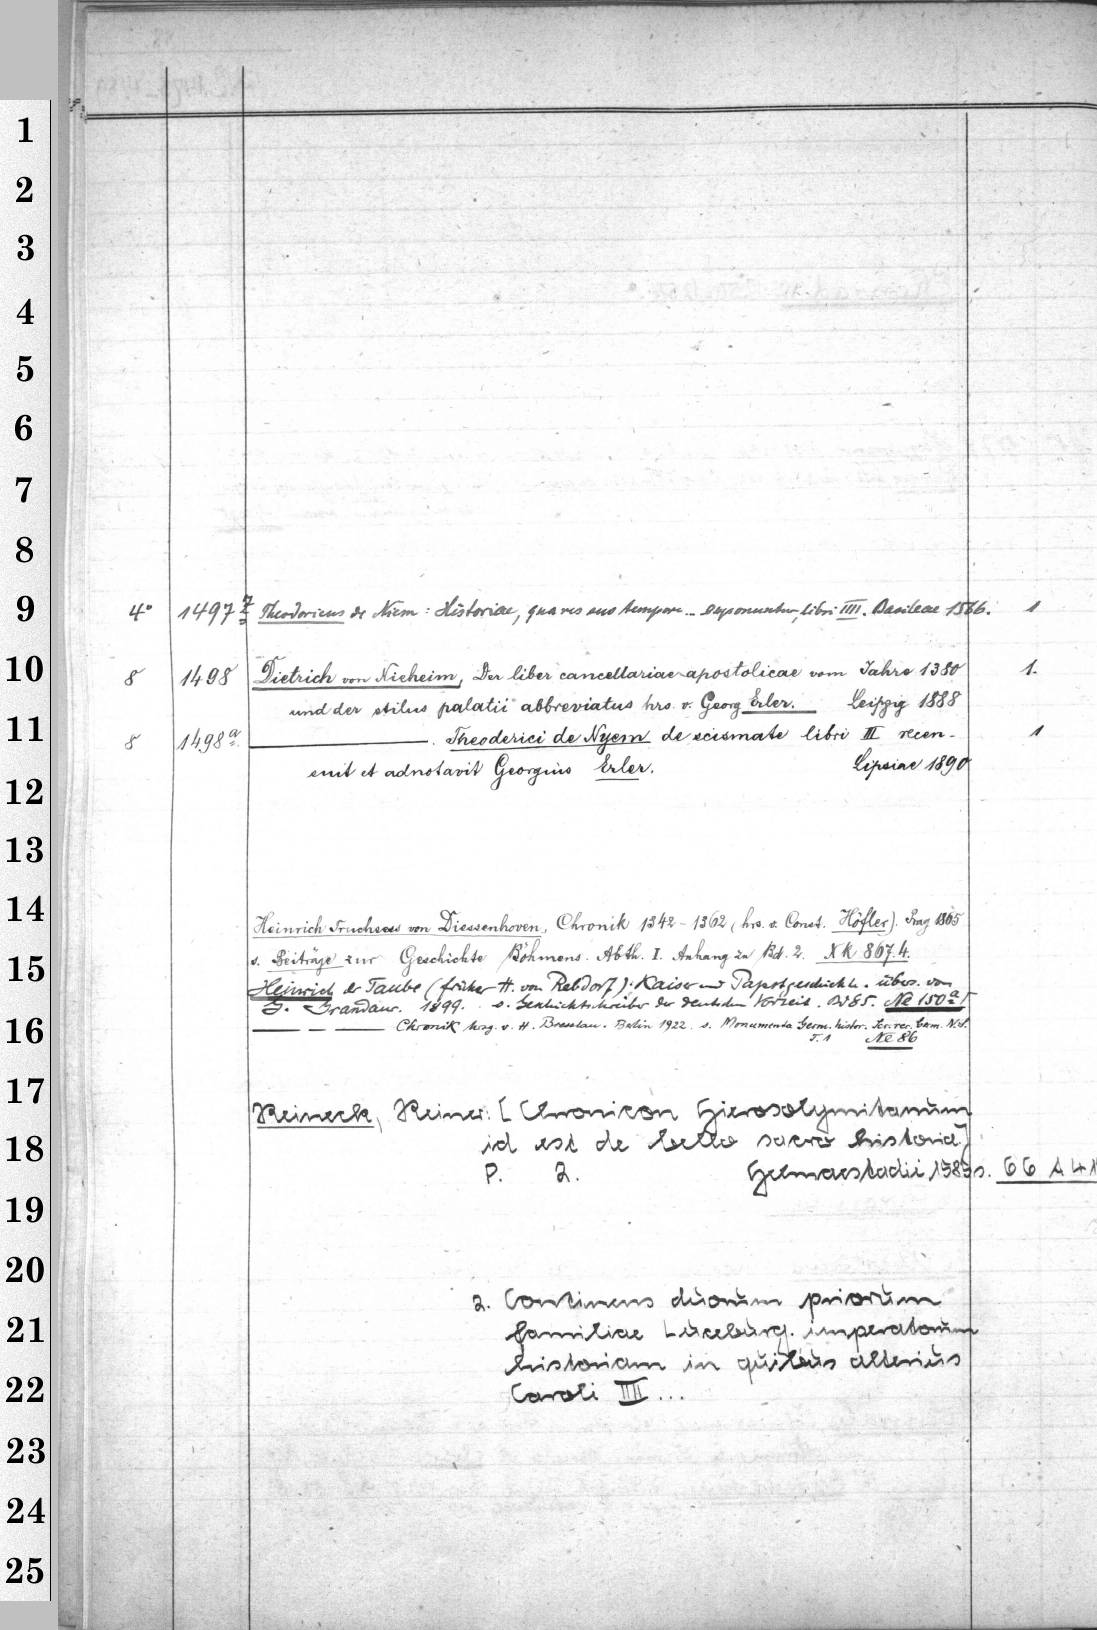 1
2
3
4
5
6
7
8
9
10
11
12
13
14
15
16
17
18
19
20
21
22
23
24
25
4° 1497 Theodoricus de Niem: Historiae, qua res suo tempore... exponuntur, libri IIII. Basileae 1566. 1
8 1498 Dietrich von Nieheim, Der liber cancellariae apostolicae vom Jahre 1380 1.
und der stilus palatii abbreviatus hrs. v. Georg Erler. Leipzig 1888
8 1498a. . Theoderici de Nyem de scismate libri III recen- 1
suit et adnotavit Georgius Erler. Lipsiae 1890
Heinrich Truchsess von Diessenhoven, Chronik 1342-1362 (hrs. v. Const. Höfler). Prag 1865
s. Beiträge zur Geschichte Böhmens. Abth. I. Anhang zu Bd. 2. XK 867.4.
Heinrich der Taube (früher H. von Rebdorf): Kaiser und Papstgeschichte. übers. von
G. Grandaur. 1899. s. Geschichtschreiber der deutschen Vorzeit. Bd 85. Ne 150a
Chronik hrsg. v. H. Bresslau. Berlin 1922. s. Monumenta Germ. histor. Scr. rer. Germ. N.S.
T. 1 Ne 86
Reineck, Reiner: [Chronicon Hierosolymitanum
id est de bello sacro historia]
P. 2. Helmaestadii 1585 s. 66 A 41
2. Continens duorum priorum
familiae Luceburg. imperatorum
historiam in quibus alterius
Caroli IIII ...